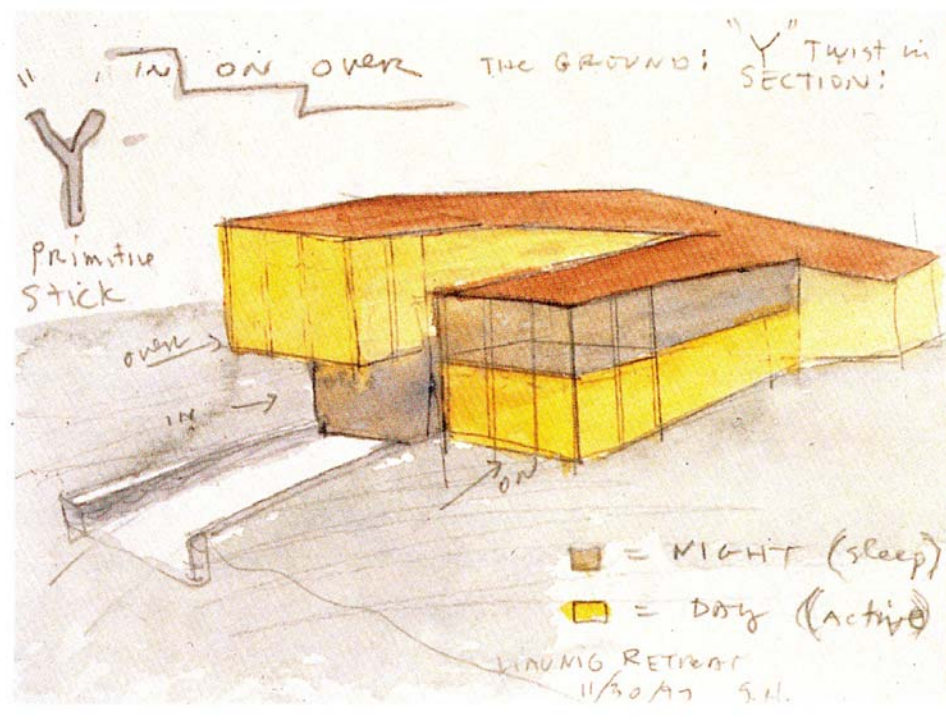 " , IN ON OVER THE GROUND: "Y" TWIST in
SECTION:
Y
PRIMITIVE
STICK
OVER
IN
ON
= NIGHT (Sleep)
= DAY (ACTIVE)
RETREAT
11/30/97 S.H.